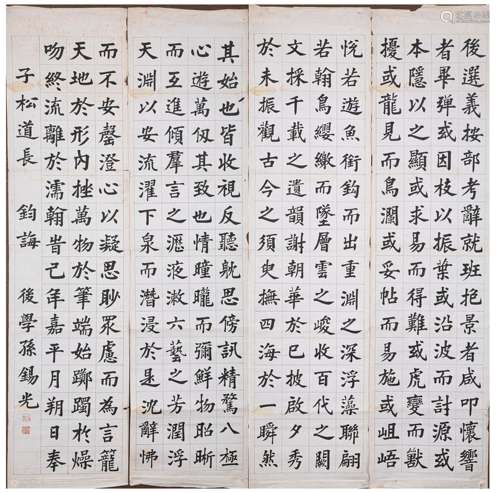 後選義按部考辭就班抱景者咸叩懷響
者畢彈或因枝以振葉或沿波而討源或
本隱以之顯或求易而得難或虎變而獸
擾或龍見而鳥瀾或妥帖而易施或岨峿
悅若遊魚銜鉤而出重淵之深浮藻聯翩
若翰鳥纓繳而墜層雲之峻收百代之闕
文採千載之遺韻謝朝華於已披啟夕秀
於未振觀古今之須臾撫四海於一瞬然
其始也皆收視反聽耽思傍訊精騖八極
心遊萬仞其致也情曈曨而彌鮮物昭晰
而互進傾羣言之瀝液漱六藝之芳潤浮
天淵以安流濯下泉而潛浸於是沈辭怫
而不安罄澄心以凝思眇眾慮而為言籠
天地於形內挫萬物於筆端始躑躅於燥
吻終流離於濡翰旹己年嘉平月朔日奉
子松道長 鈞誨 後學孫錫光